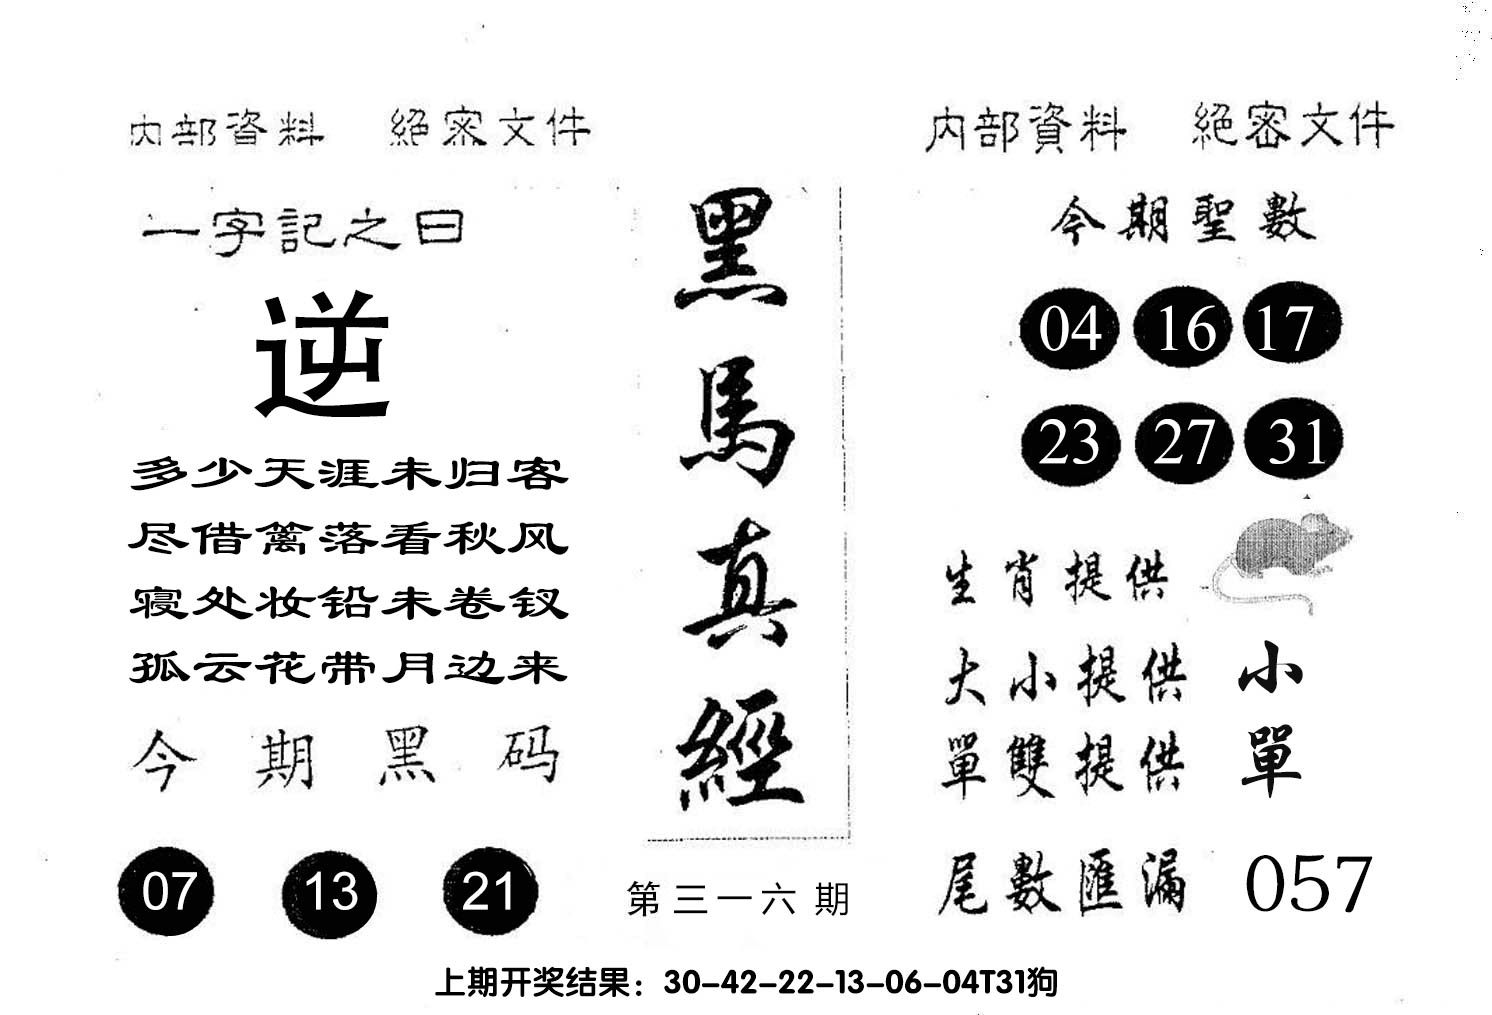 内部資料 絕密文件
一字記之曰
逆
多少天涯未归客
尽借篱落看秋风
寝处妆铅未卷钗
孤云花带月边来
今期黑码
07 13 21
黑馬真經
第三一六期
内部資料 絕密文件
今期聖數
04 16 17
23 27 31
生肖提供
大小提供 小
單雙提供 單
尾數匯漏 057
上期开奖结果：30-42-22-13-06-04T31狗